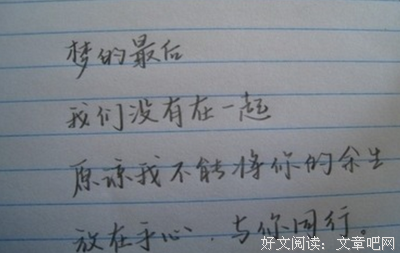 梦的最后
我们没有在一起
原谅我不能将你的余生
放在手心、与你同行。
好文阅读：文章吧网